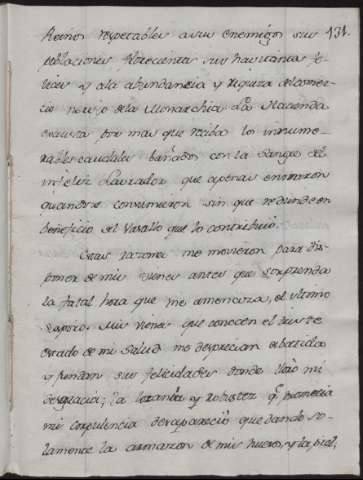 131.
Reinos respetables a sus enemigos sus
poblaciones florecientes sus havitantes fe-
lices y a la abundancia y riqueza del comer-
cio nervio de la Monarchia. La Hacienda
exausta por mas que reciba los innume-
rables caudales bañados con la sangre del
infeliz Labrador que apenas entraron
quando se consumieron sin que redunde en
beneficio del Vasallo que lo contribuió.
Estas razones me movieron para dis-
poner de mis vienes antes que sorprenda
la fatal hora que me amenaza, el ultimo
vapor. Mis vienes que conocen el triste
estado de mi salud me deprecian
y fundan sus felicidades donde mi
desgracia; la lozania y robustez q.e prometia
mi corpulencia desaparecio quedando so-
lamente la armazon de mis huesos, y la piel,